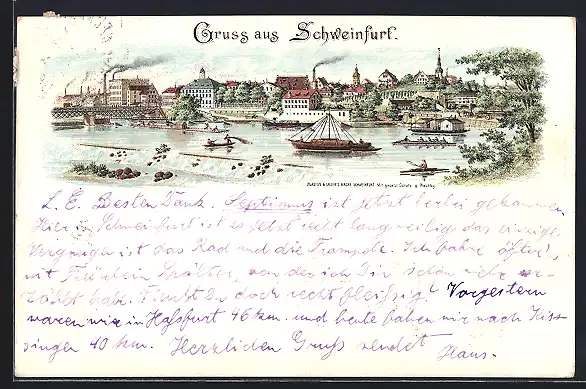 Gruss aus Schweinfurt.
L. E. Besten Dank. Septimus ist jetzt
Hier in Schweinfurt ist es jetzt recht langweilig das einzige
Vergnügen ist das Rad und die Trompete. Ich fahre öfter
mit Fräulein von der ich Dir schon viel er-
zählt habe. Du doch recht fleissig? Vorgestern
waren wir in Hassfurt 46 km. und heute haben wir nach Kis-
singen 40 km. Herzlichen Gruß sendet
Hans.